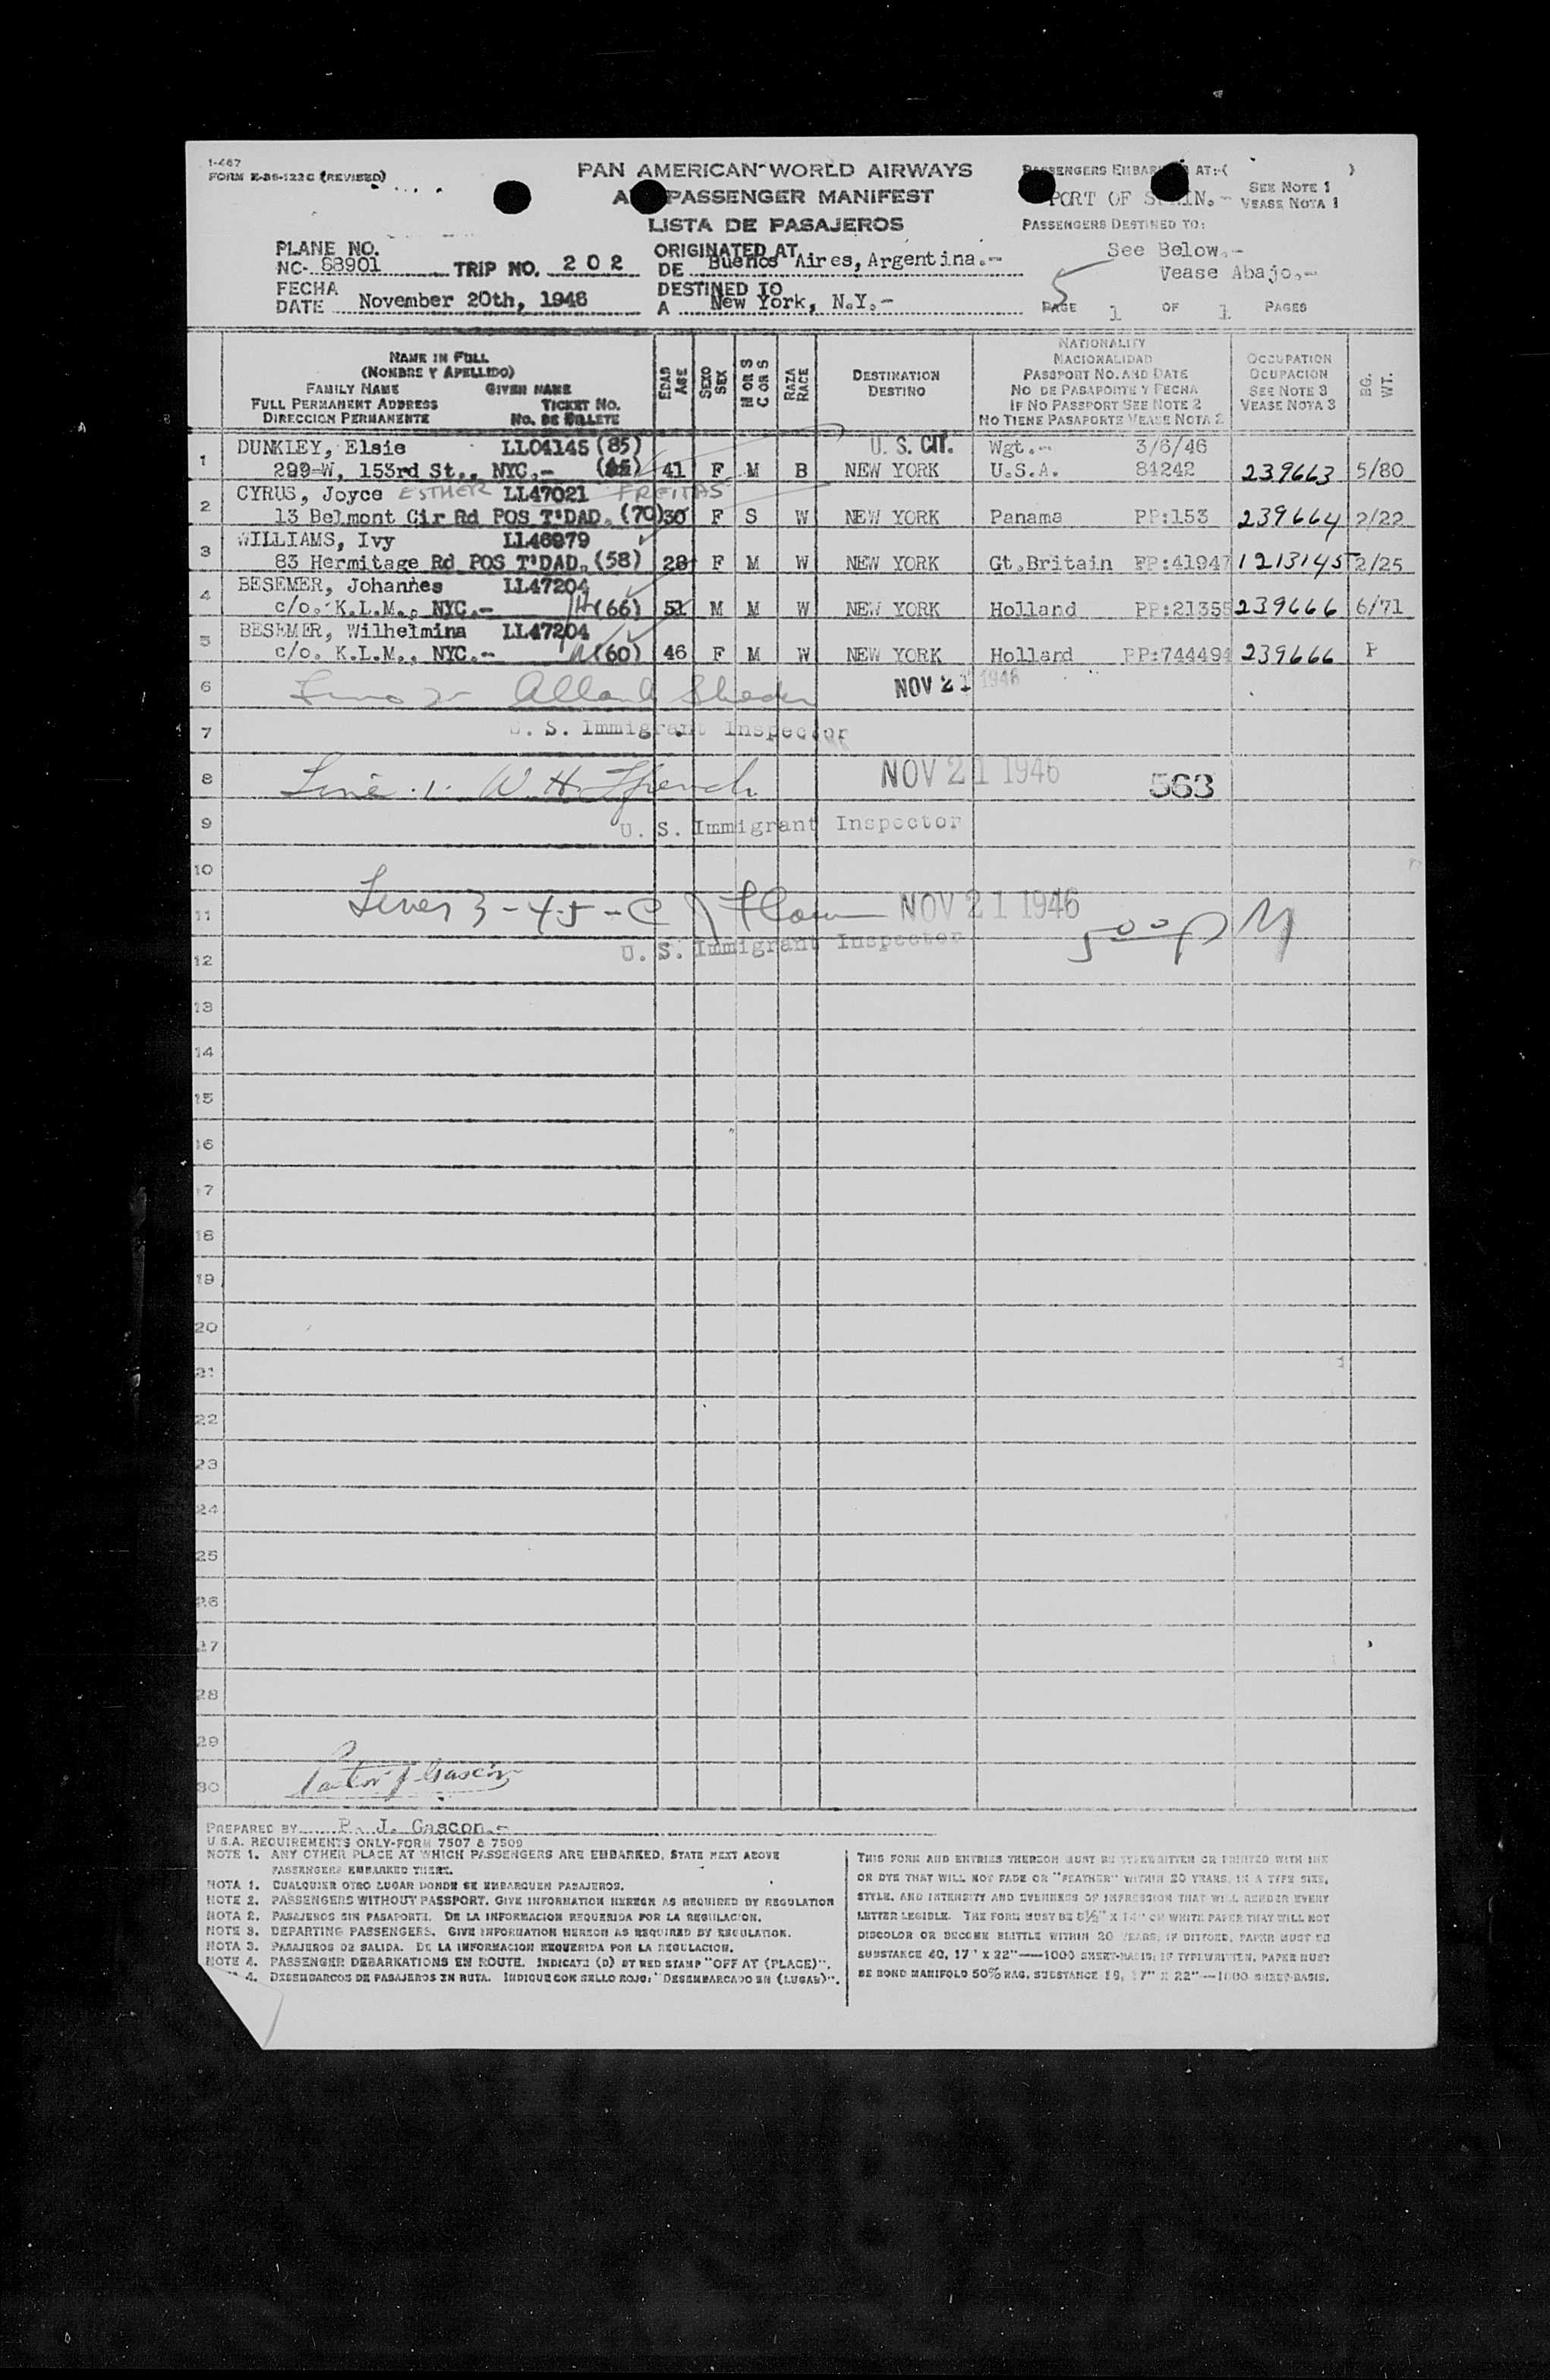 1-467
FORM K-86-122C (REVISED)
PAN AMERICAN WORLD AIRWAYS
PASSENGER MANIFEST
LISTA DE PASAJEROS
PASSENGERS EMBAR AT:-( )
PORT OF S IN.- SEE NOTE 1
VEASE NOTA 1
PASSENGERS DESTINED TO:
See Below.-
Vease Abajo.-
PLANE NO.
NC- 88901 TRIP NO. 2 0 2
FECHA
DATE November 20th, 1946
ORIGINATED AT
DE Buenos Aires, Argentina.-
DESTINED TO
A New York, N.Y.-
PAGE 1 OF 1 PAGES
NAME IN FULL
(NOMBRE Y APELLIDO)
FAMILY NAME GIVEN NAME
FULL PERMANENT ADDRESS TICKET NO.
DIRECCION PERMANENTE NO. DE BILLETE
EDAD AGE
SEXO SEX
M OR S C OR S
RAZA RACE
DESTINATION
DESTINO
NATIONALITY
NACIONALIDAD
PASSPORT NO. AND DATE
NO DE PASAPORTE Y FECHA
IF NO PASSPORT SEE NOTE 2
NO TIENE PASAPORTE VEASE NOTA 2
OCCUPATION
OCUPACION
SEE NOTE 3
VEASE NOTA 3
BG. WT.
1 DUNKLEY, Elsie LL04145 (85) U. S. CIT. Wgt.- 3/6/46
299-W, 153rd St., NYC.- 41 F M B NEW YORK U.S.A. 84242 239663 5/80
2 CYRUS, Joyce ESTHER LL47021 FREITAS
13 Belmont Cir Rd POS T'DAD. (70) 30 F S W NEW YORK Panama PP:153 239664 2/22
3 WILLIAMS, Ivy LL46979
83 Hermitage Rd POS T'DAD. (58) 28 F M W NEW YORK Gt.Britain PP:41947 1213145 2/25
4 BESEMER, Johannes LL47204
c/o. K.L.M., NYC.- (66) 51 M M W NEW YORK Holland PP:21355 239666 6/71
5 BESEMER, Wilhelmina LL47204
c/o. K.L.M., NYC.- (60) 46 F M W NEW YORK Holland PP:744494 239666 P
6 NOV 21 1946
7 U. S. Immigrant Inspector
8 Line 1. W. H. French NOV 21 1946 563
9 U. S. Immigrant Inspector
10
11 Lines 3-4-5 - C J NOV 21 1946 5 00 PM
12 U. S. Immigrant Inspector
13
14
15
16
17
18
19
20
21
22
23
24
25
26
27
28
29
30 Pastor J Gascon
PREPARED BY P. J. Gascon.-
U.S.A. REQUIREMENTS ONLY-FORM 7507 & 7509
NOTE 1. ANY OTHER PLACE AT WHICH PASSENGERS ARE EMBARKED, STATE NEXT ABOVE
PASSENGERS EMBARKED THERE.
NOTA 1. CUALQUIER OTRO LUGAR DONDE SE EMBARQUEN PASAJEROS.
NOTE 2. PASSENGERS WITHOUT PASSPORT. GIVE INFORMATION HEREON AS REQUIRED BY REGULATION
NOTA 2. PASAJEROS SIN PASAPORTE. DE LA INFORMACION REQUERIDA POR LA REGULACION.
NOTE 3. DEPARTING PASSENGERS. GIVE INFORMATION HEREON AS REQUIRED BY REGULATION.
NOTA 3. PASAJEROS DE SALIDA. DE LA INFORMACION REQUERIDA POR LA REGULACION.
NOTE 4. PASSENGER DEBARKATIONS EN ROUTE. INDICATE (D) BY RED STAMP "OFF AT (PLACE)".
4. DESEMBARCOS DE PASAJEROS EN RUTA. INDIQUE CON SELLO ROJO: "DESEMBARCADO EN (LUGAR)".
THIS FORM AND ENTRIES THEREON MUST BE TYPEWRITTEN OR PRINTED WITH INK
OR DYE THAT WILL NOT FADE OR "FEATHER" WITHIN 20 YEARS, IN A TYPE SIZE,
STYLE, AND INTENSITY AND EVENNESS OF IMPRESSION THAT WILL RENDER EVERY
LETTER LEGIBLE. THE FORM MUST BE 8½" X 14" ON WHITE PAPER THAT WILL NOT
DISCOLOR OR BECOME BRITTLE WITHIN 20 YEARS, IF DITTOED, PAPER MUST BE
SUBSTANCE 40, 17" X 22"—1000 SHEET-BASIS; IF TYPEWRITTEN, PAPER MUST
BE BOND MANIFOLD 50% RAG, SUBSTANCE 16, 17" X 22"—1000 SHEET-BASIS.